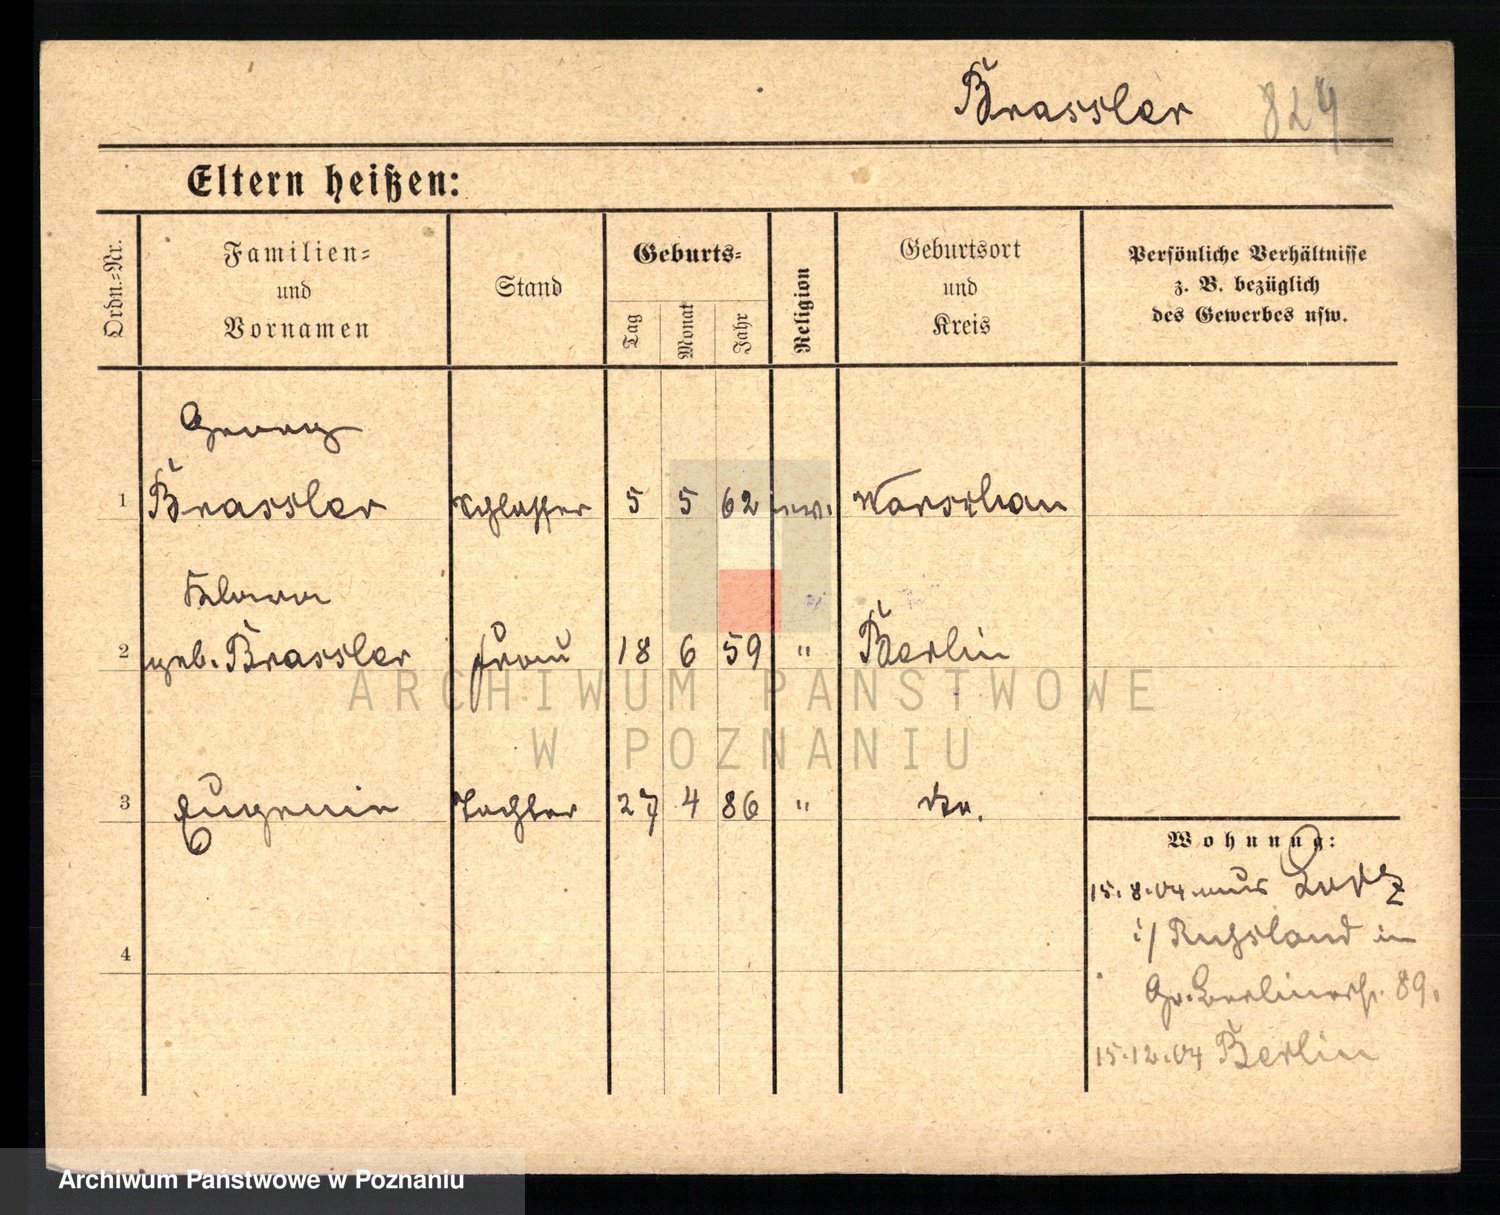 Brassler 824
Eltern heißen:
Ordn.=Nr.
Familien=
und
Vornamen
Stand
Geburts=
Tag
Monat
Jahr
Religion
Geburtsort
und
Kreis
Persönliche Verhältnisse
z. B. bezüglich
des Gewerbes usw.
Georg
1 Brassler Schlosser 5 5 62 ev. Warschau
Klara
2 geb. Brassler Frau 18 6 59 " Berlin
3 Eugenie Tochter 27 4 86 " do.
Wohnung:
15.8.04 aus Lodz
i/ Russland in
Gr. Berlinerstr. 89.
15.12.04 Berlin
4
ARCHIWUM PAŃSTWOWE
W POZNANIU
Archiwum Państwowe w Poznaniu